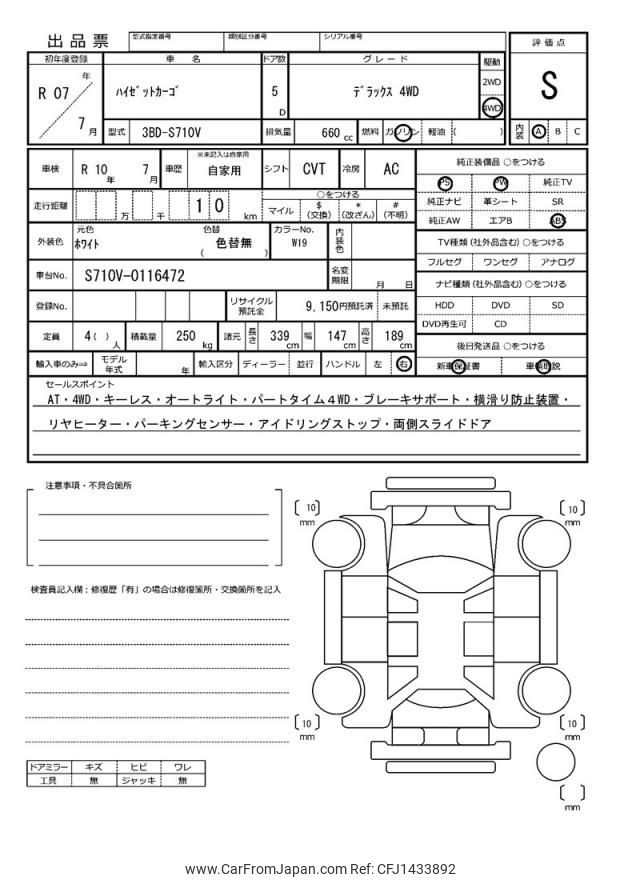 出品票
型式指定番号 類別区分番号 シリアル番号
初年度登録 車 名 ドア数 グレード 駆動 評価点
R 07 年 7 月
ハイゼットカーゴ 5 D デラックス 4WD
2WD
4WD
S
型式 3BD-S710V 排気量 660 cc 燃料 ガソリン 軽油 ( )
内装 A B C
車検 R 10 年 7 月 車歴 ※未記入は自家用 自家用 シフト CVT 冷房 AC
走行距離 万 千 1 0 km
○をつける
マイル $(交換) *(改ざん) #(不明)
外装色 元色 ホワイト 色替 色替無 ( ) カラーNo. W19 内装色
車台No. S710V-0116472 名変期限 月 日
登録No. リサイクル預託金 9,150円預託済 未預託
定員 4( ) 人 積載量 250 kg 諸元 長さ 339 cm 幅 147 cm 高さ 189 cm
輸入車のみ⇒ モデル年式 年 輸入区分 ディーラー 並行 ハンドル 左 右
純正装備品 ○をつける
PS PW 純正TV
純正ナビ 革シート SR
純正AW エアB ABS
TV種類 (社外品含む) ○をつける
フルセグ ワンセグ アナログ
ナビ種類 (社外品含む) ○をつける
HDD DVD SD
DVD再生可 CD
後日発送品 ○をつける
新車保証書 車輌取説
セールスポイント
AT・4WD・キーレス・オートライト・パートタイム4WD・ブレーキサポート・横滑り防止装置・
リヤヒーター・パーキングセンサー・アイドリングストップ・両側スライドドア
注意事項・不具合箇所
検査員記入欄：修復歴「有」の場合は修復箇所・交換箇所を記入
ドアミラー キズ ヒビ ワレ
工具 無 ジャッキ 無
〔 10 〕 mm
〔 10 〕 mm
〔 10 〕 mm
〔 10 〕 mm
〔 〕 mm
www.CarFromJapan.com Ref: CFJ1433892